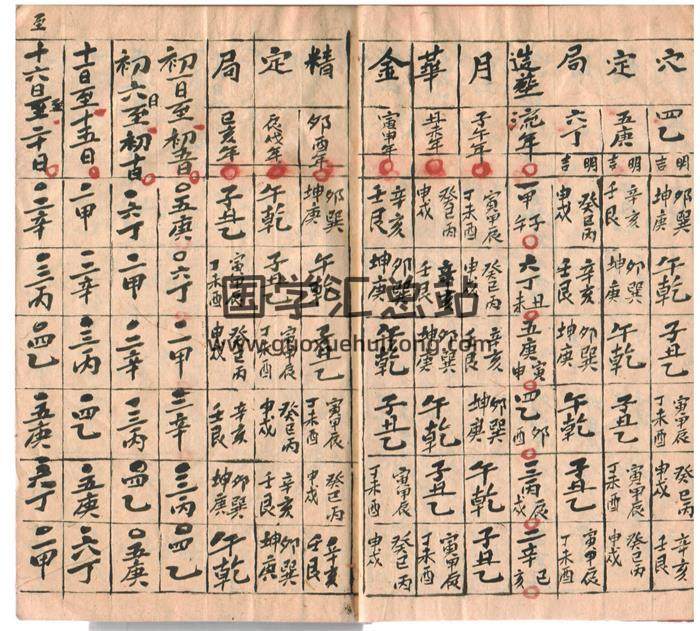 穴 四乙 明吉 卯巽坤庚 午乾 子丑乙 寅甲辰丁未酉 癸巳丙申戌 辛亥壬艮
定 五庚 明吉 辛亥壬艮 卯巽坤庚 午乾 子丑乙 寅甲辰丁未酉 癸巳丙申戌
局 六丁 明吉 癸巳丙申戌 辛亥壬艮 卯巽坤庚 午乾 子丑乙 寅甲辰丁未酉
造葬 流年 一甲子午 六丁丑未 五庚寅申 四乙卯酉 三丙辰戌 二辛巳亥
月 子午年 寅甲辰丁未酉 癸巳丙申戌 辛亥壬艮 卯巽坤庚 午乾 子丑乙
華 丑未年 癸巳丙申戌 辛亥壬艮 卯巽坤庚 午乾 子丑乙 寅甲辰丁未酉
金 寅申年 辛亥壬艮 卯巽坤庚 午乾 子丑乙 寅甲辰丁未酉 癸巳丙申戌
精 卯酉年 卯巽坤庚 午乾 子丑乙 寅甲辰丁未酉 癸巳丙申戌 辛亥壬艮
定 辰戌年 午乾 子丑乙 寅甲辰丁未酉 癸巳丙申戌 辛亥壬艮 卯巽坤庚
局 巳亥年 子丑乙 寅甲辰丁未酉 癸巳丙申戌 辛亥壬艮 卯巽坤庚 午乾
初一日至初五日 五庚 六丁 一甲 二辛 三丙 四乙
初六日至初十日 六丁 一甲 二辛 三丙 四乙 五庚
十一日至十五日 一甲 二辛 三丙 四乙 五庚 六丁
至
十六日至二十日 二辛 三丙 四乙 五庚 六丁 一甲
国学汇总站
www.guoxuehuitong.com